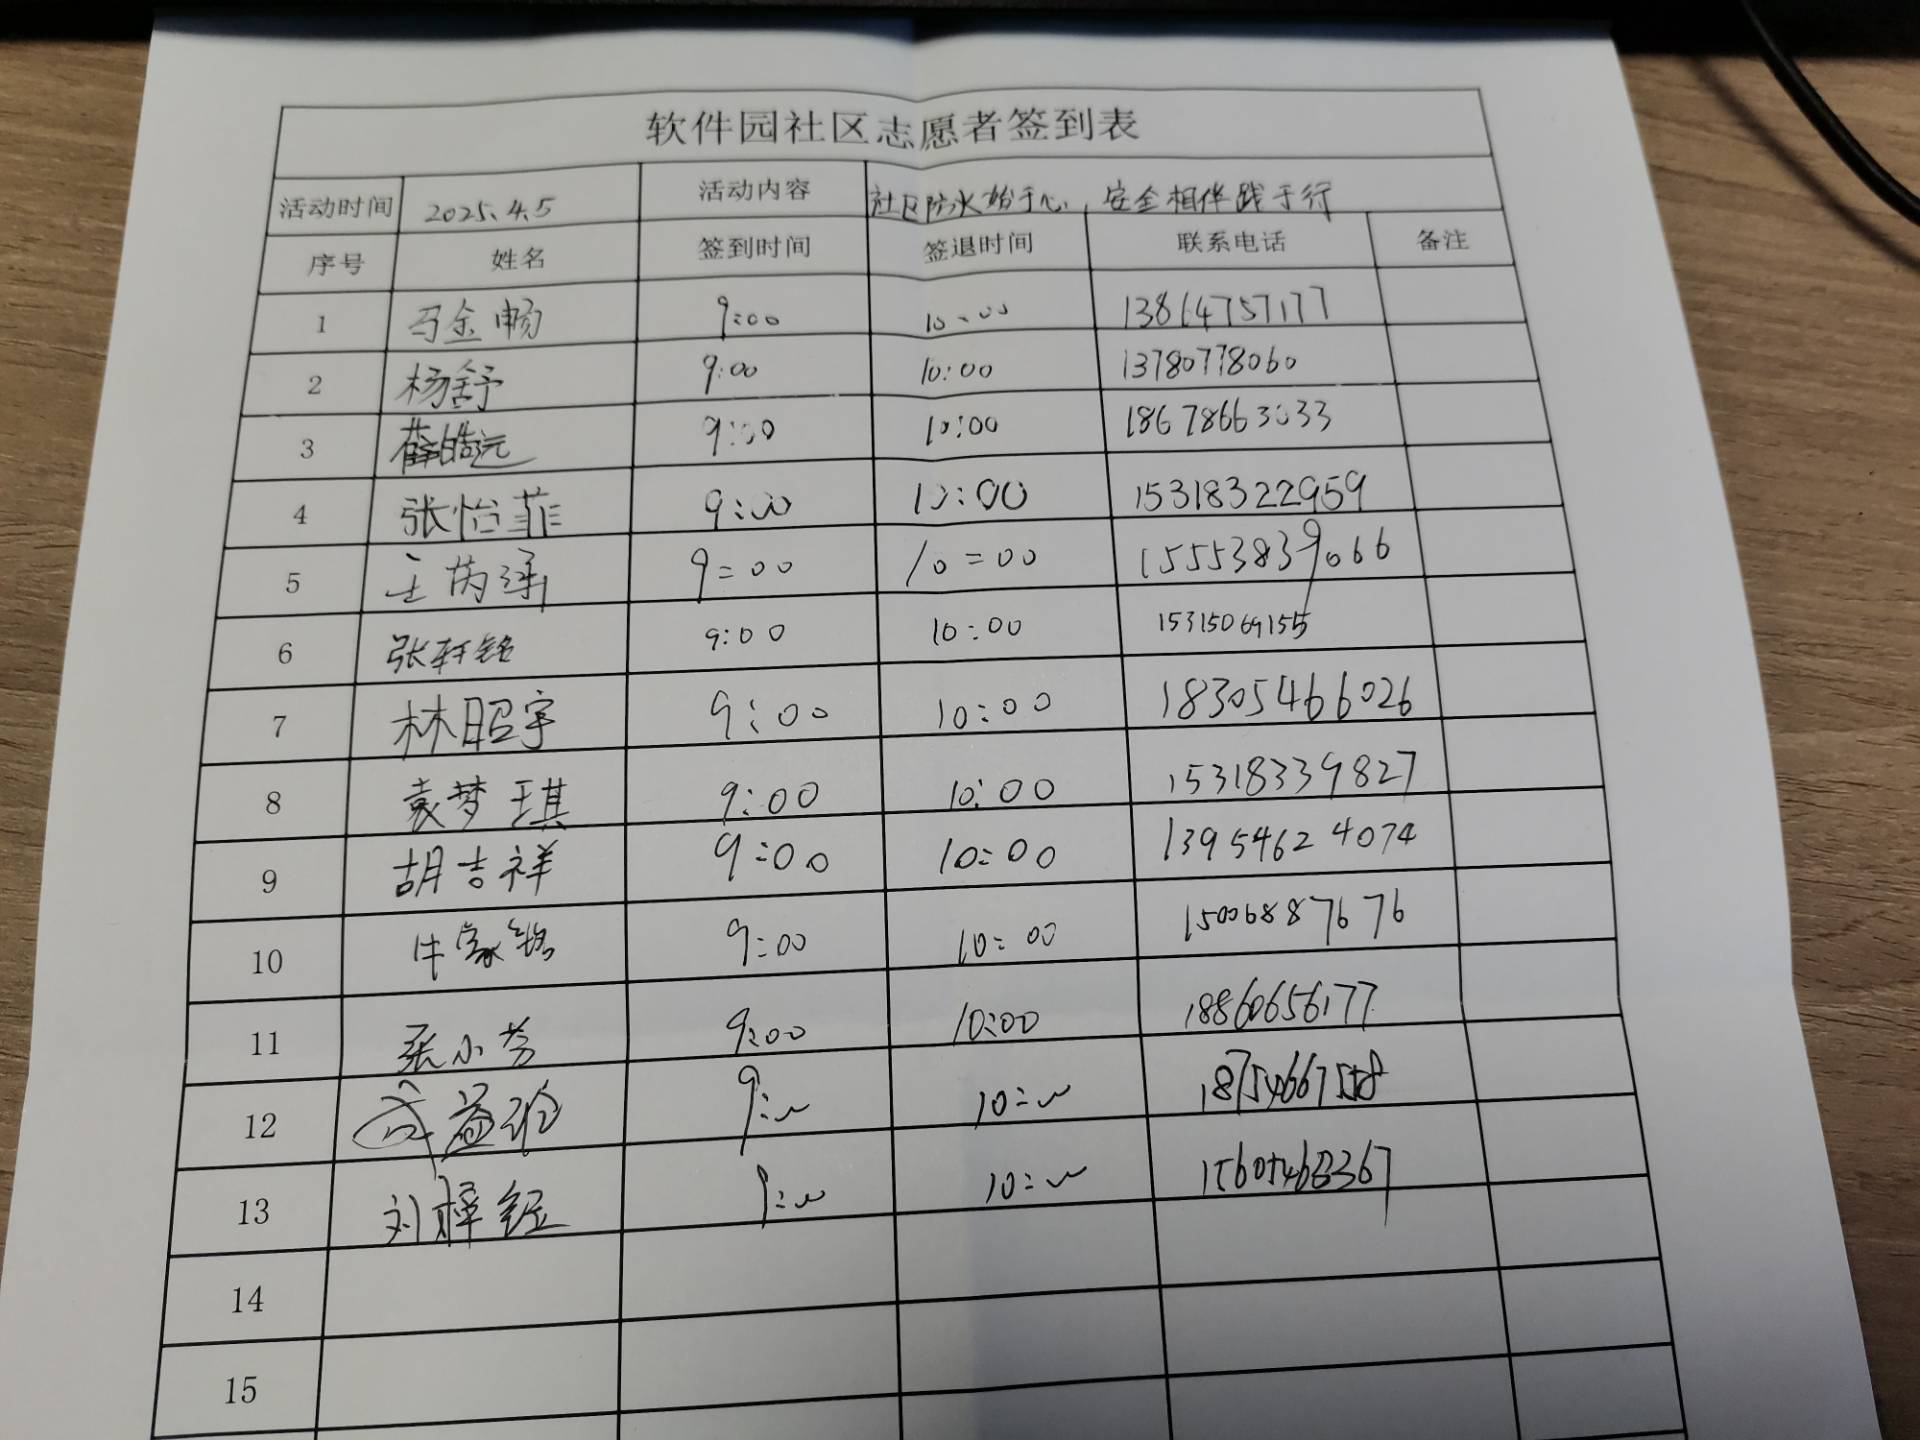 软件园社区志愿者签到表
活动时间 2025.4.5 活动内容 社区防火始于心,安全相伴践于行
序号 姓名 签到时间 签退时间 联系电话 备注
1 马金畅 9:00 10:00 13864757177
2 杨舒 9:00 10:00 13780778060
3 薛皓远 9:00 10:00 18678663033
4 张怡菲 9:00 10:00 15318322959
5 王芮涵 9:00 10:00 15553839066
6 张轩铭 9:00 10:00 15315069155
7 林昭宇 9:00 10:00 18305466026
8 袁梦琪 9:00 10:00 15318339827
9 胡吉祥 9:00 10:00 13954624074
10 牛家铭 9:00 10:00 15006887676
11 张小芳 9:00 10:00 18860656177
12 9:00 10:00
13 刘梓 9:00 10:00
14
15